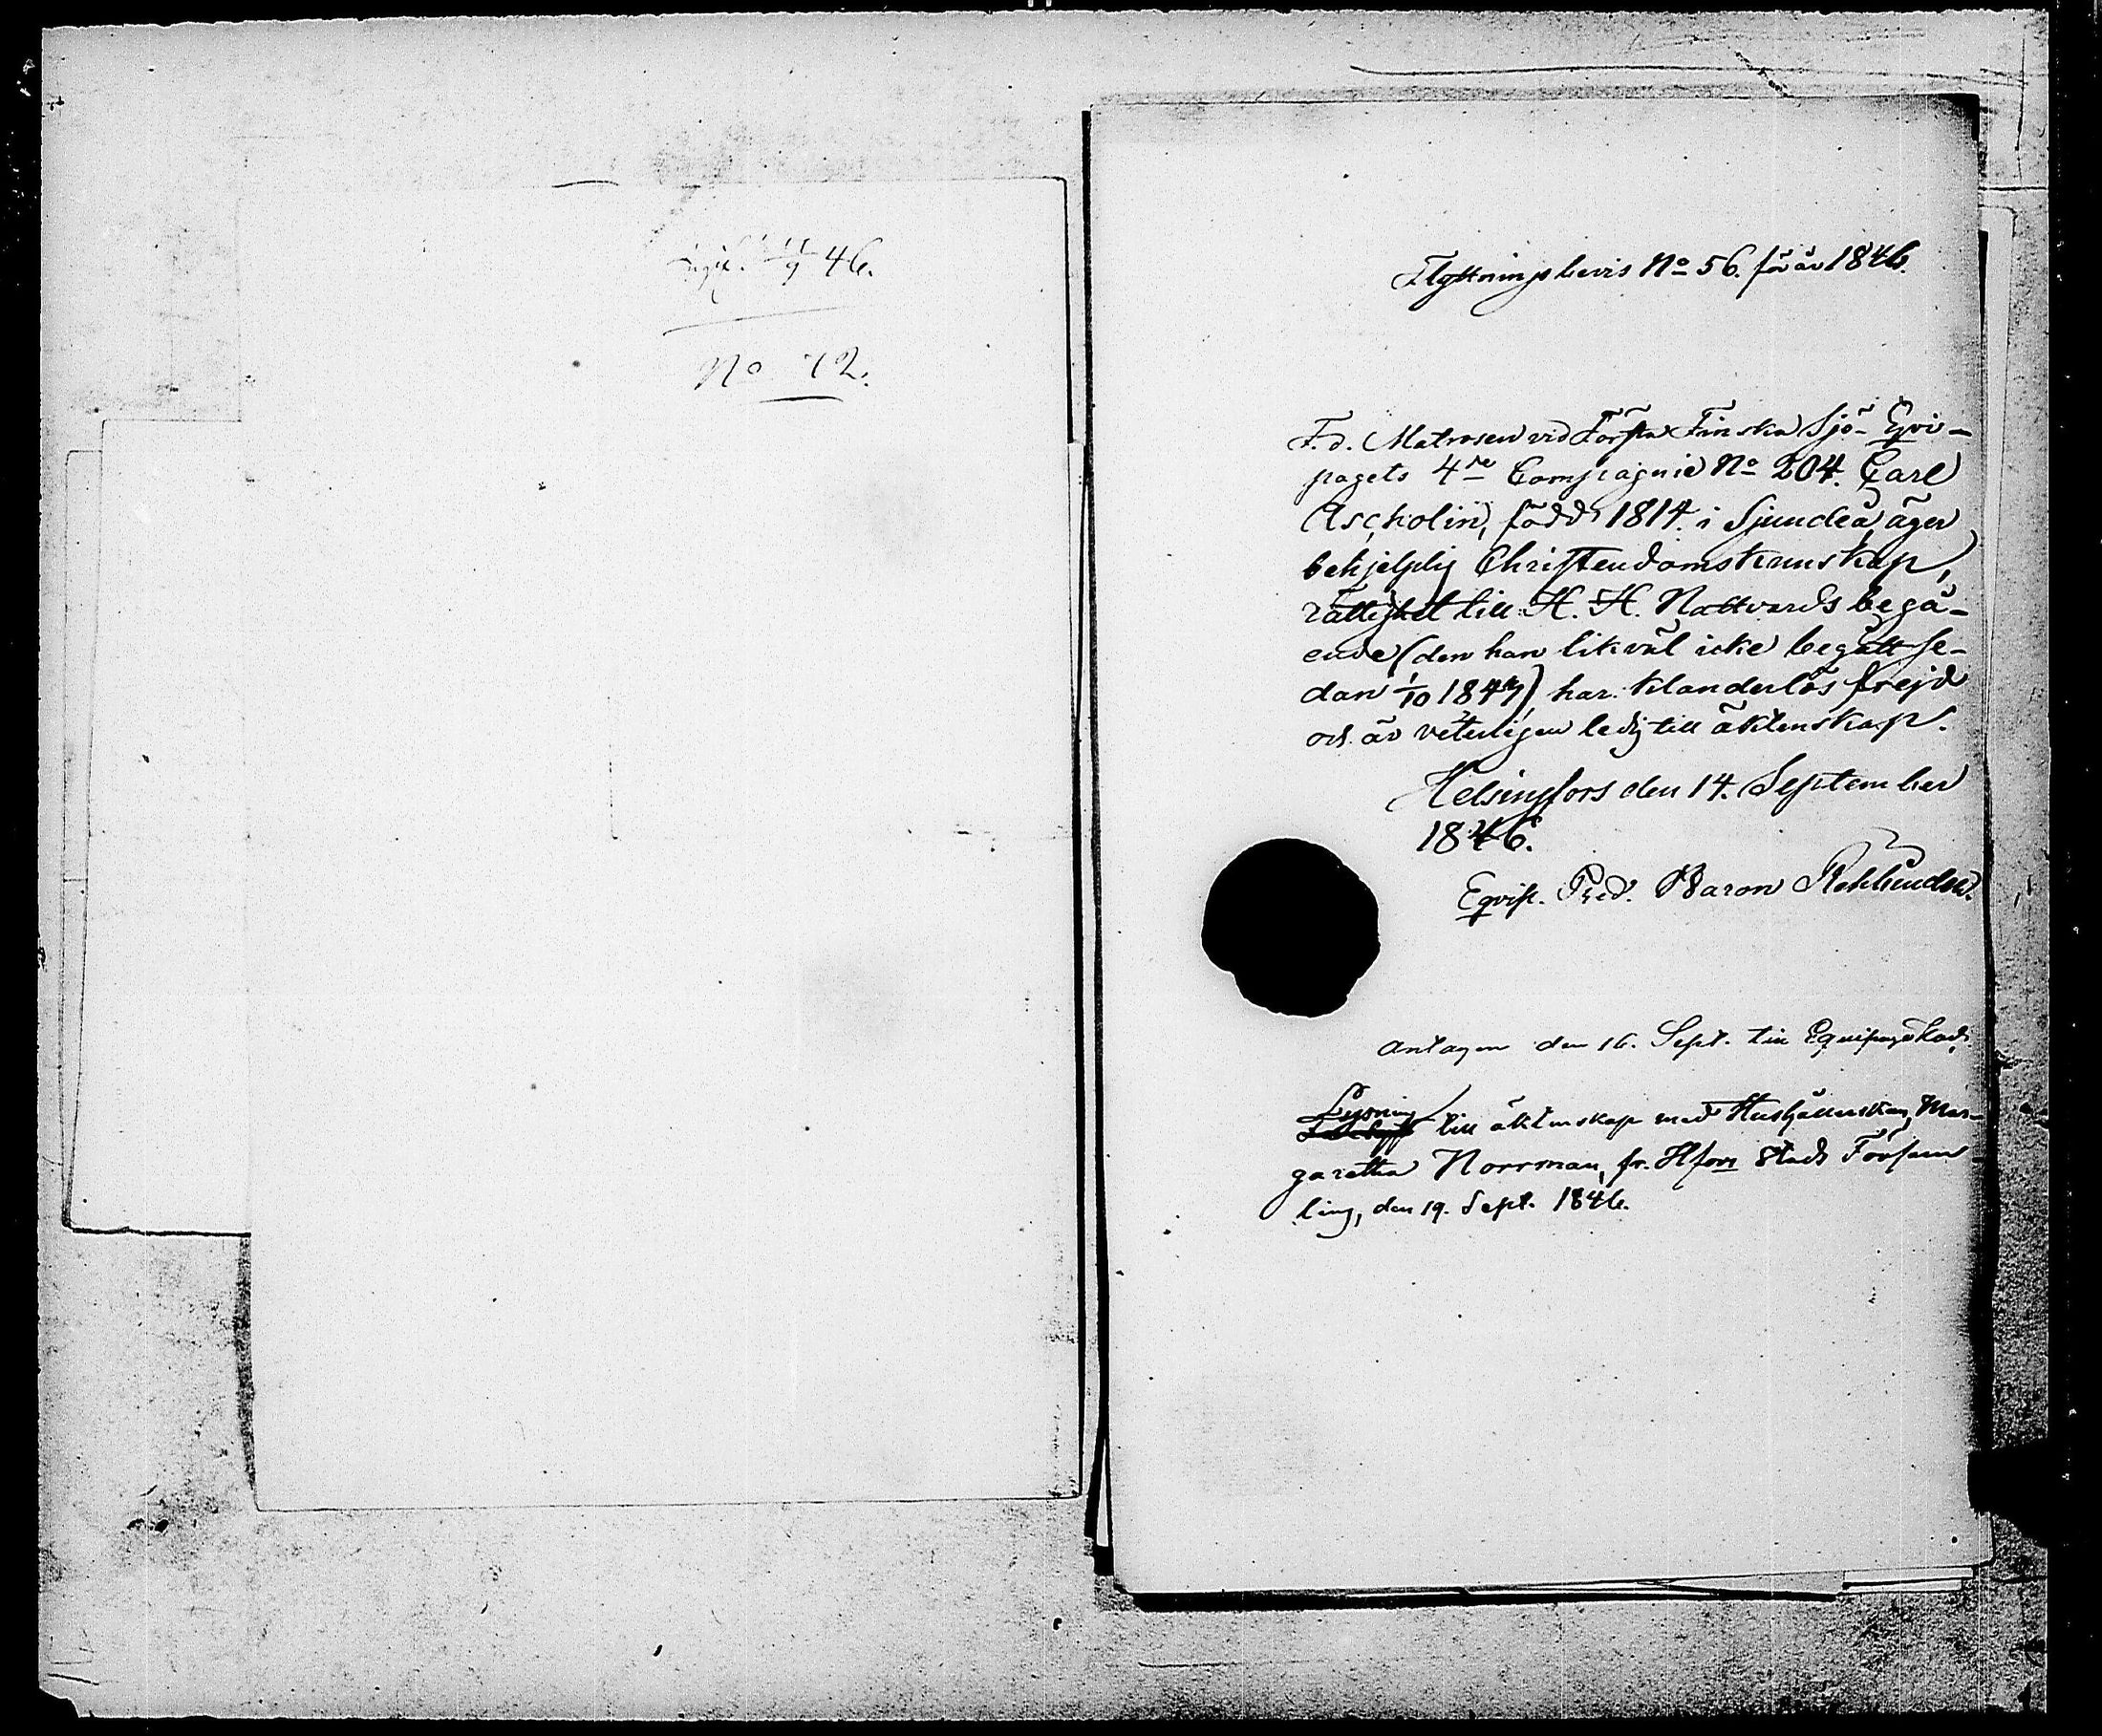 46.
No 72.
Flyttningsbevis No 56. för år 1846.
F. d. Matrosen vid Första Finska Sjö-Eqvi-
pagets 4de Compagnie No 204. Carl
Ascholin, född 1814. i Sjundeå, äger
behjelplig Christendomskunskap,
rättighet till H. H. Nattvards begå-
ende (den han likväl icke begått se-
dan 1/10 1844), har klanderlös frejd
och är veterligen ledig till äktenskap.
Helsingfors den 14. September
1846.
Eqvip. Pred. Baron Rehbinder.
Antagen den 16. Sept. till Equipage
Lysning till äktenskap med Hushållerskan, Mar-
garetha Norrman, fr. Hfors Stads Försam-
ling, den 19. Sept. 1846.